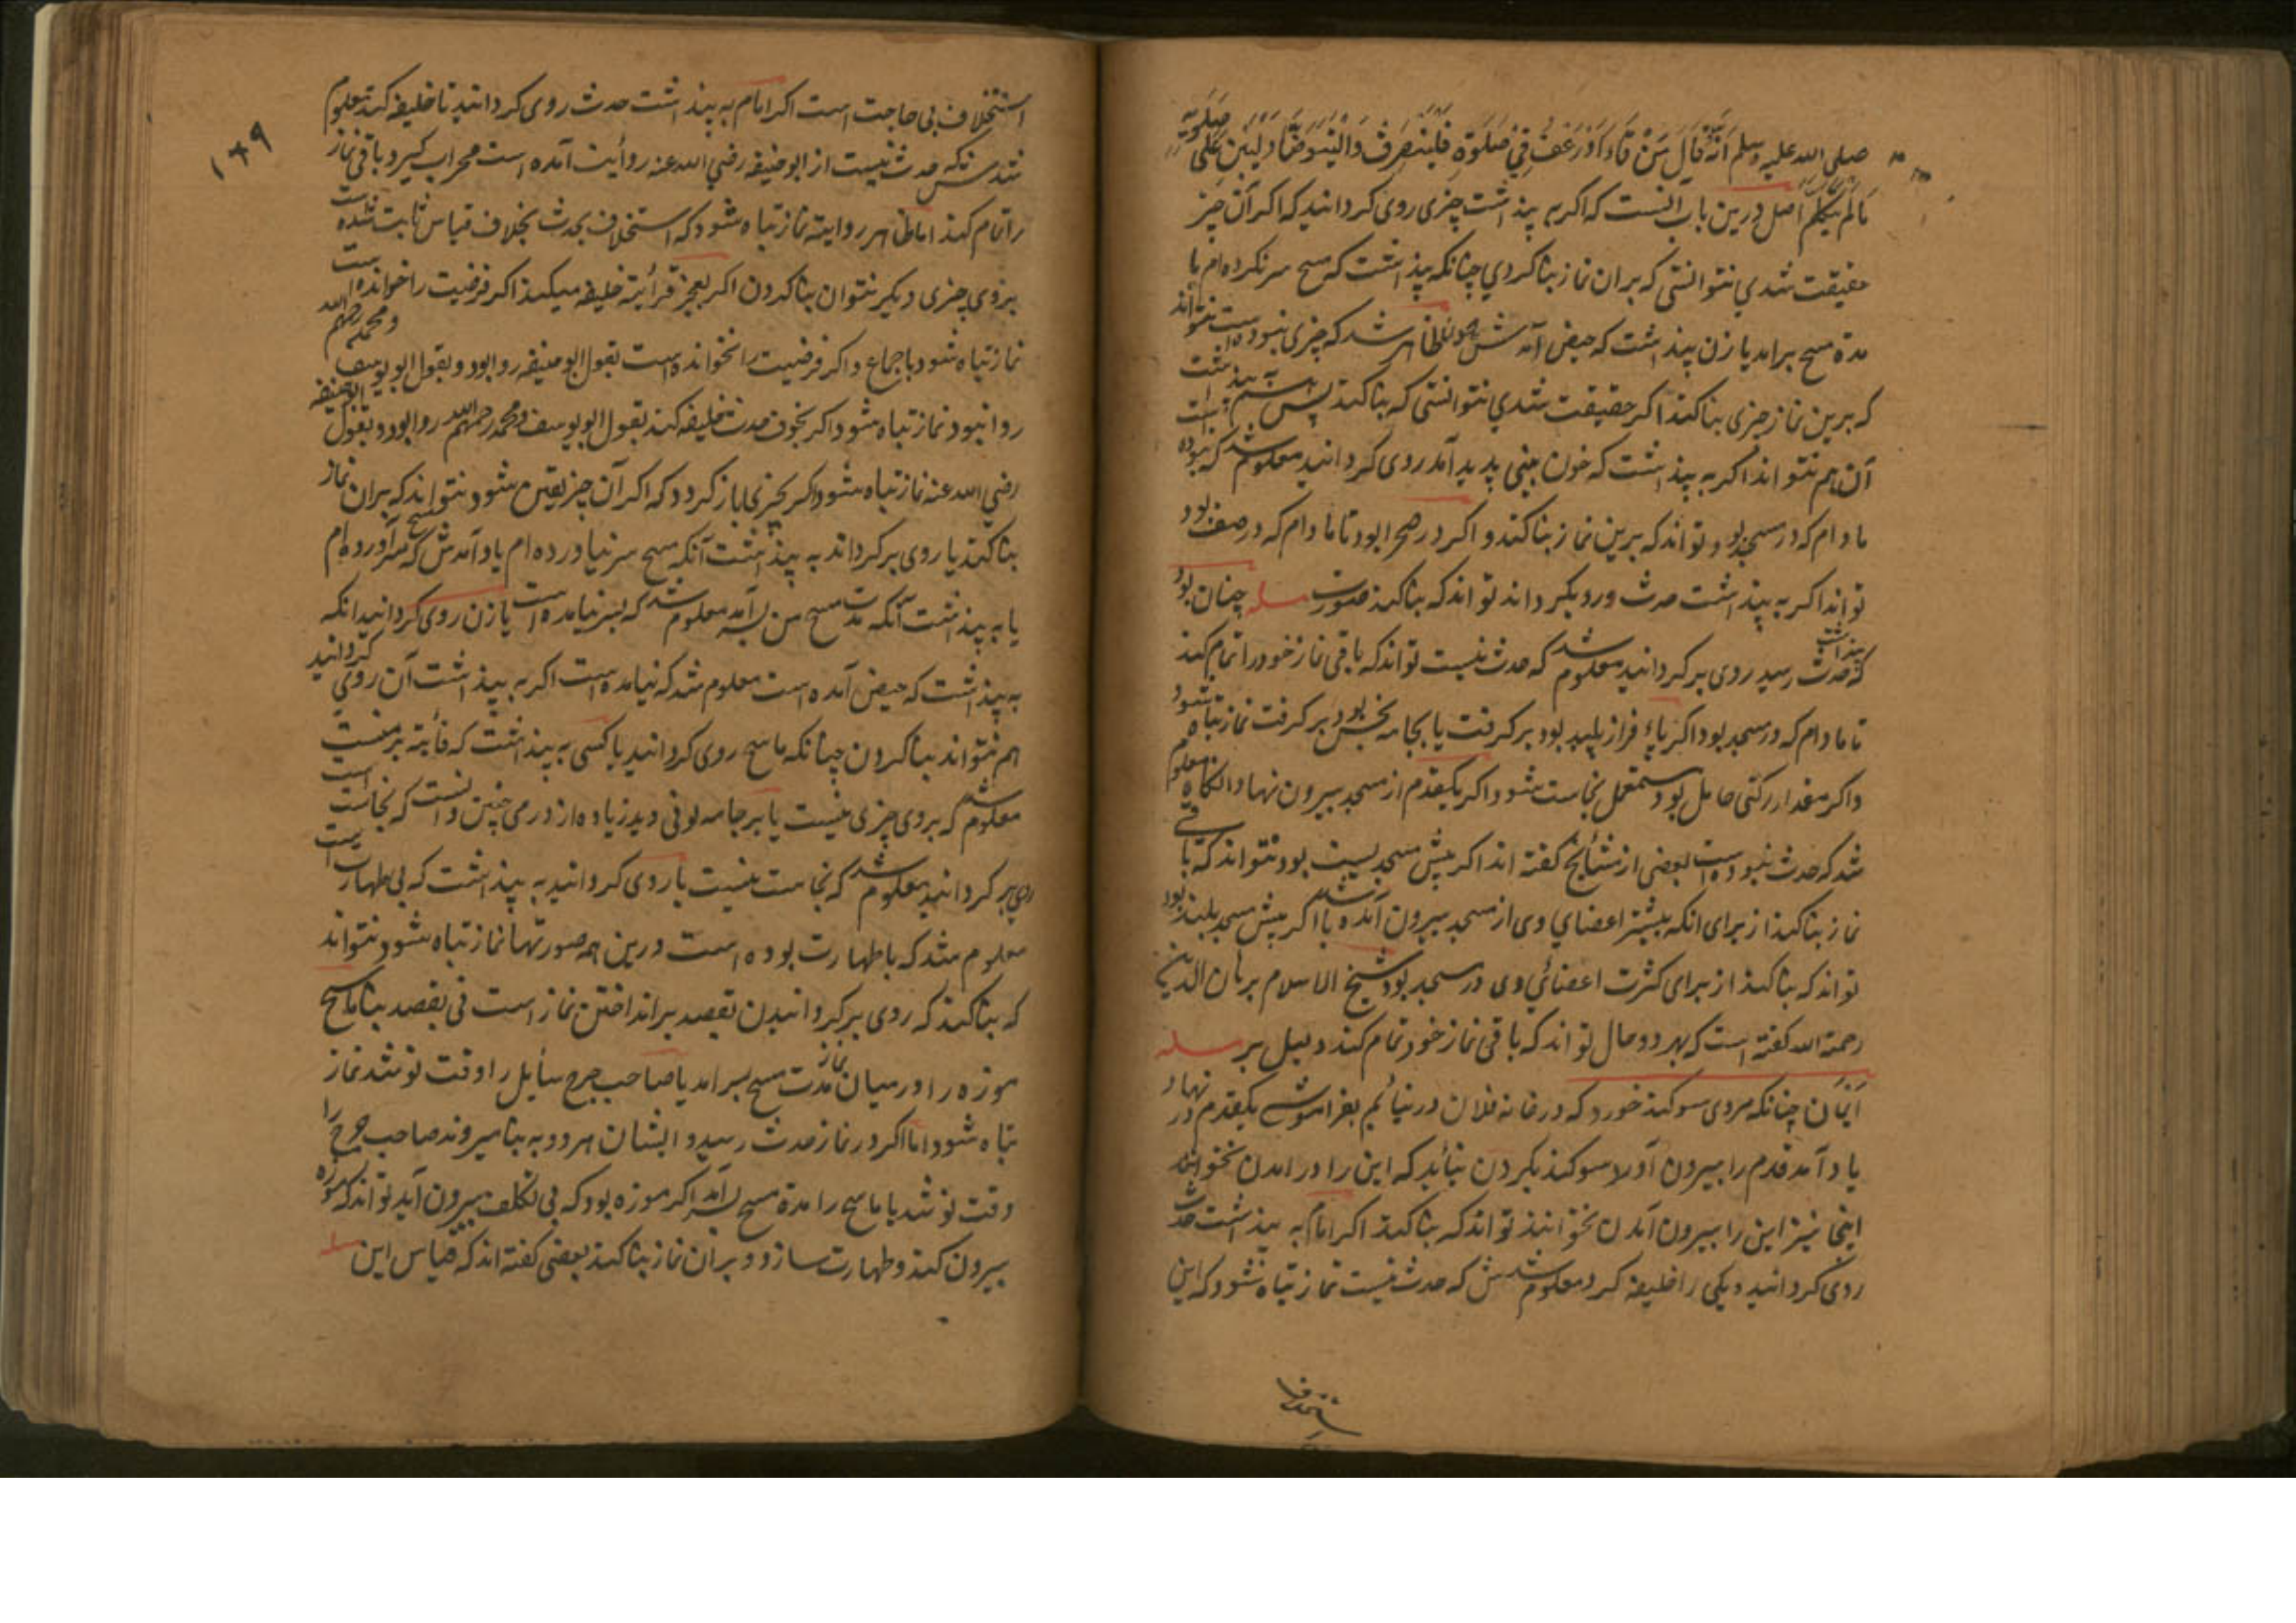 صلی الله علیه وسلم انه قال من قاء او رعف فی صلوة فلینصرف والیتوضأ ولیبن علی صلوته
مالم یتکلم اصل درین باب آنست که اکر به پنداشت چیزی روی کردانید که اکر آن چیز
حقیقت شدی نتوانستی که بران نماز بنا کردی چنانکه پنداشت که مسح سر نکرده ام یا
مدة مسح برامد یا زن پنداشت که حیض آمدش ظاهر شد که چیزی نبوده است نتواند
که برین نماز چیزی بنا کند اکر حقیقت شدی نتوانستی که بنا کند پس
آن هم نتواند اکر به پنداشت که خون بینی پدید آمد روی کردانید معلوم شد که نبوده است
مادام که در مسجد بود تواند که برین نماز بنا کند و اکر در صحرا بود تا مادام که در صف بود
تواند اکر به پنداشت حدث روی بکرداند تواند که بنا کند صورت مسله چنان بود
که پنداشت حدث رسید روی برکردانید معلوم شد که حدث نیست تواند که باقی نماز خود را تمام کند
تا مادام که در مسجد بود اکر پای فراز پلید بود برکرفت یا بجامه نجس بود برکرفت نماز تباه شود
واکر مقدار رکنی حامل بود مستعمل نجاست شود اکر یکقدم از مسجد بیرون نهاد وانکاه معلوم
شد که حدث نبوده است بعضی از مشایخ کفته اند اکر پیش مسجد پست بود نتواند که باقی
نماز بنا کند از برای انکه بیشتر اعضای وی از مسجد بیرون آمده باشد اکر پیش مسجد بلند بود
تواند که بنا کند از برای کثرت اعضائی وی در مسجد بود شیخ الاسلام برهان الدین
رحمة الله کفته است که بهر دو حال تواند که باقی نماز خود تمام کند دلیل بر مسله
ایمان چنانکه مردی سوکند خورد که در خانه فلان در نیایم بفراموشی یکقدم در نهاد
یاد آمد قدم را بیرون آورد سوکند بکردن نیاید که این را در امدن نخوانند
اینجا نیز این را بیرون آمدن نخوانند تواند که بنا کند اکر امام به پنداشت حدث
روی کردانید و یکی را خلیفه کرد معلوم شدش که حدث نیست نماز تباه شود که این
استخلاف بی حاجت است اکر امام به پنداشت حدث روی کردانید تا خلیفه کند معلوم
شدش که حدث نیست از ابو حنیفه رضی الله عنه روایت آمده است محراب کیرد باقی نماز
را تمام کند اما ظاهر روایة نماز تباه شود که استخلاف بحدث بخلاف قیاس ثابت شده است
بروی چیزی دیکر نتوان بنا کردن اکر بعجز قرأة خلیفه میکند اکر فرضیت را خوانده است
نماز تباه شود باجماع و اکر فرضیت را نخوانده است بقول ابو حنیفه روا بود و بقول ابو یوسف ومحمد رحمهم الله
روا نبود نماز تباه شود اکر بخوف حدث خلیفه کند بقول ابو یوسف و محمد رحمهم الله روا بود و بقول ابو حنیفه
رضی الله عنه نماز تباه شود اکر بچیزی باز کردد که اکر آن چیز یقین شود نتواند که بران نماز
بنا کند یا روی برکرداند به پنداشت آنکه مسح سر نیاورده ام یاد آمدش که مسح سر آورده ام
یا به پنداشت آنکه مدت مسح من بسر آمد معلوم شد که بسر نیامده است یا زن روی کردانید انکه
به پنداشت که حیض آمده است معلوم شد که نیامده است اکر به پنداشت آن روی کردانید
هم نتواند بنا کردن چنانکه ماسح روی کردانید یا کسی به پنداشت که فائته بر منست
معلوم شد که بروی چیزی نیست یا بر جامه لونی دید زیاده از درمی چنین دانست که نجاست است
روی برکردانید معلوم شد که نجاست نیست یا روی کردانید به پنداشت که بی طهارت است
معلوم شد که با طهارت بوده است درین همه صورتها نماز تباه شود نتواند
که بنا کند که روی برکردانیدن بقصد برانداختن نماز است نی بقصد بنا ماسح
موزه را در میان نماز مدت مسح بسر امد یا صاحب جرح سایل را وقت نو شد نماز
تباه شود اما اکر در نماز حدث رسید و ایشان هر دو به بنا میروند صاحب جرح را
وقت نو شد یا ماسح را مدة مسح بسر آمد اکر موزه بود که بی تکلف بیرون آید تواند که موزه
بیرون کند و طهارت سازد و بران نماز بنا کند بعضی کفته اند که قیاس این مسله